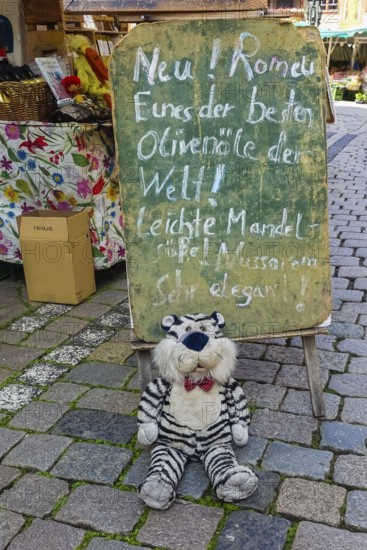 Neu! Romeu
Eines der besten
Olivenöle der
Welt!
Leichte Mandel-
süße!
Sehr elegant!
FRAGILE